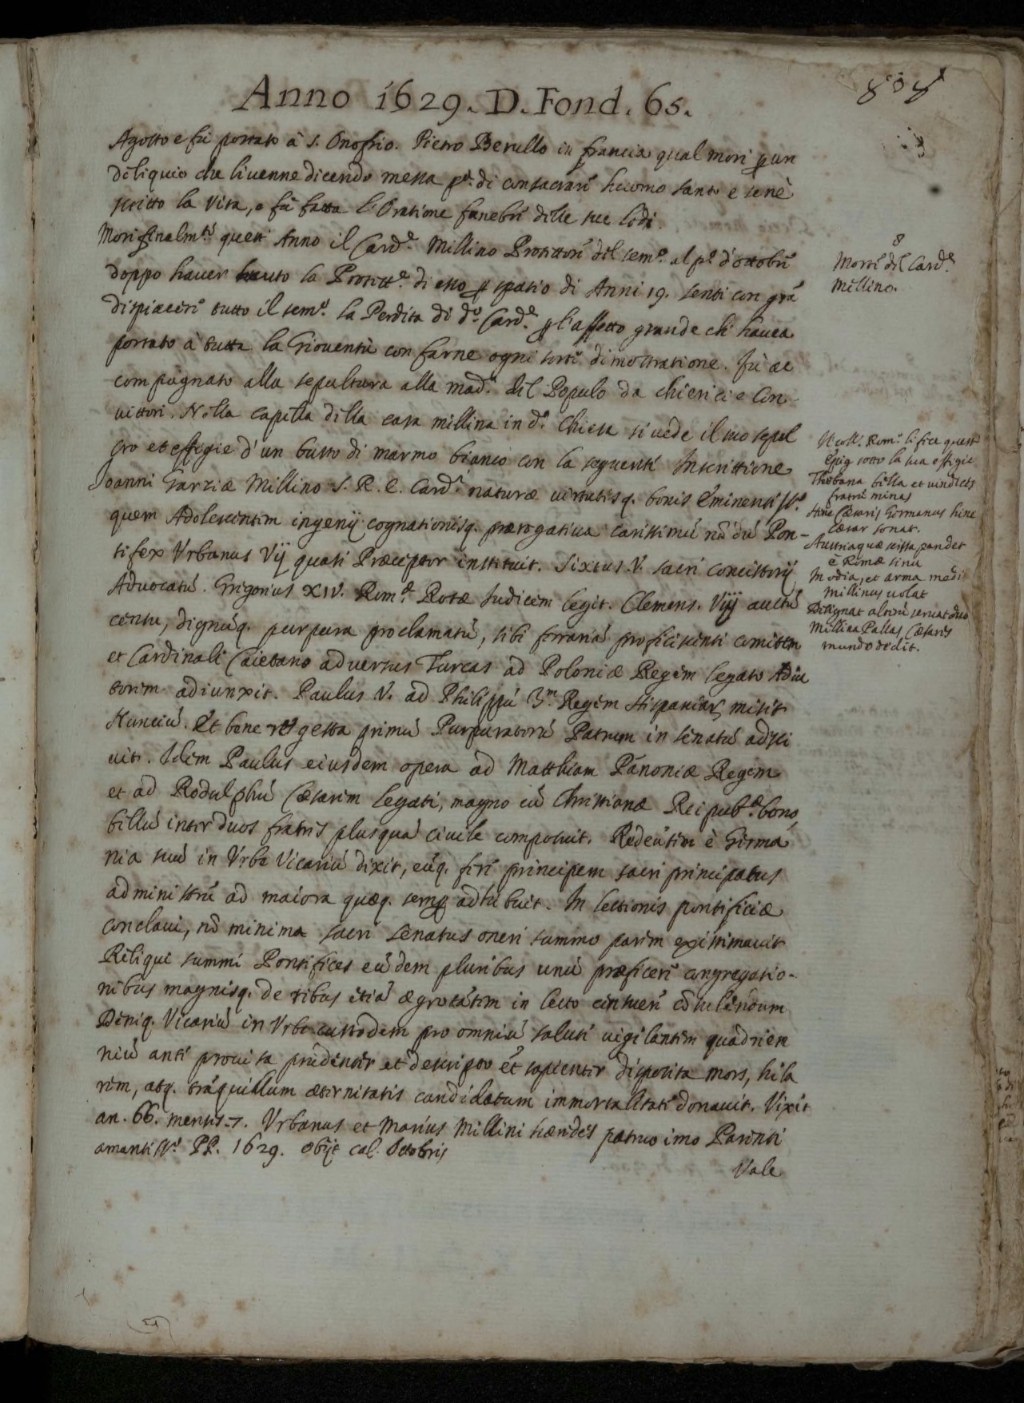 Anno 1629. D. Fond. 65.
808
Agosto e fù portato à S. Onofrio. Pietro Berullo in francia qual morì p un
deliquio che li venne dicendo messa pª. di consacrarsi huomo santo e sene
scritto la Vita, e fù fatta l'Oratione funebre delle sue lodi.
Morì finalmte. quest' Anno il Cardle. Millino Protettore del Semo. al po. d'ottobre
doppo haver hauto la Protettne. di esso p spatio di Anni 19. sentì con grã
dispiacere tutto il Semo. la Perdita di do. Cardle. p l'affetto grande ch' havea
portato à tutta la Gioventù con farne ogni sorte dimostratione. Fù ac
compagnato alla sepultura alla Mada. del Populo da chierici e Con
vittori. Nella Capella della casa millina in da. Chiesa si vede il suo sepol
cro et effigie d'un busto di marmo bianco con la seguente Inscrittione
Ioanni Garziæ Millino S. R. E. Card. naturæ virtutisq. bonis Eminentisso.
quem Adolescentem ingenij cognationisq. prærogativa carissimũ nõdũ Pon-
tifex Urbanus Vij quasi Præceptor instituit. Sixtus V. sacri Concistorij
Advocatũ. Gregorius XIV. Romæ. Rotæ Iudicem legit. Clemens. Viij auctũ
censu, dignũq. purpura proclamatũ, sibi ferrariã proficiscenti comitem
et Cardinali Caietano adversus Turcas ad Poloniæ Regem legato Adiu
torem adiunxit. Paulus V. ad Philippũ 3m Regem Hispaniar. misit
Nunciũ. Et bene re gesta primũ Purpuratorũ Patrum in senatũ adsci
vit. Idem Paulus eiusdem opera ad Matthiam Pãnoniæ Regem
et ad Rodulphũ Cæsarem legati, magno cũ Christianæ Reipubcæ. bono,
bellũ inter duos fratres plusquã civile composuit. Redeũtem è Germa
nia suũ in Urbe Vicariũ dixit, eũq. ferè principem sacri principatus
administrũ ad maiora quæq. semp adhibuit. In lectionis pontificiæ
conclavi, nõ minima sacri senatus oneri summo parem existimavit
Reliqui summi Pontifices eũdem pluribus unũ præficere congregatio-
nibus magnisq. de rebus etiã ægrotãtem in lecto consulendum
Deniq. Vicariũ in Urbe custodem pro omniũ salute vigilantem quadrien
niũ ante provisa prudenter et descripto et sapienter disposita mors, hila
rem, atq. trãquillum æternitatis candidatum immortalitati donavit. Vixit
an. 66. mens. 7. Urbanus et Marius Millini hæredes patruo imo Parenti
amantisso. PP. 1629. Obijt cal. Octobris
Vale
8
Morte del Cardle.
Millino.
Il Coll. Romo. li fece questo
Epig. sotto la sua effigie
Thebana bella et vindicis
fratrũ minas
Hinc Cæsaris Germanus hinc
Cæsar sonat.
Austriaquæ scissa pandet
è Romæ sinu
In media, et arma medi
Millinus volat
Millina Pallas, Cæsares
mundo dedit.